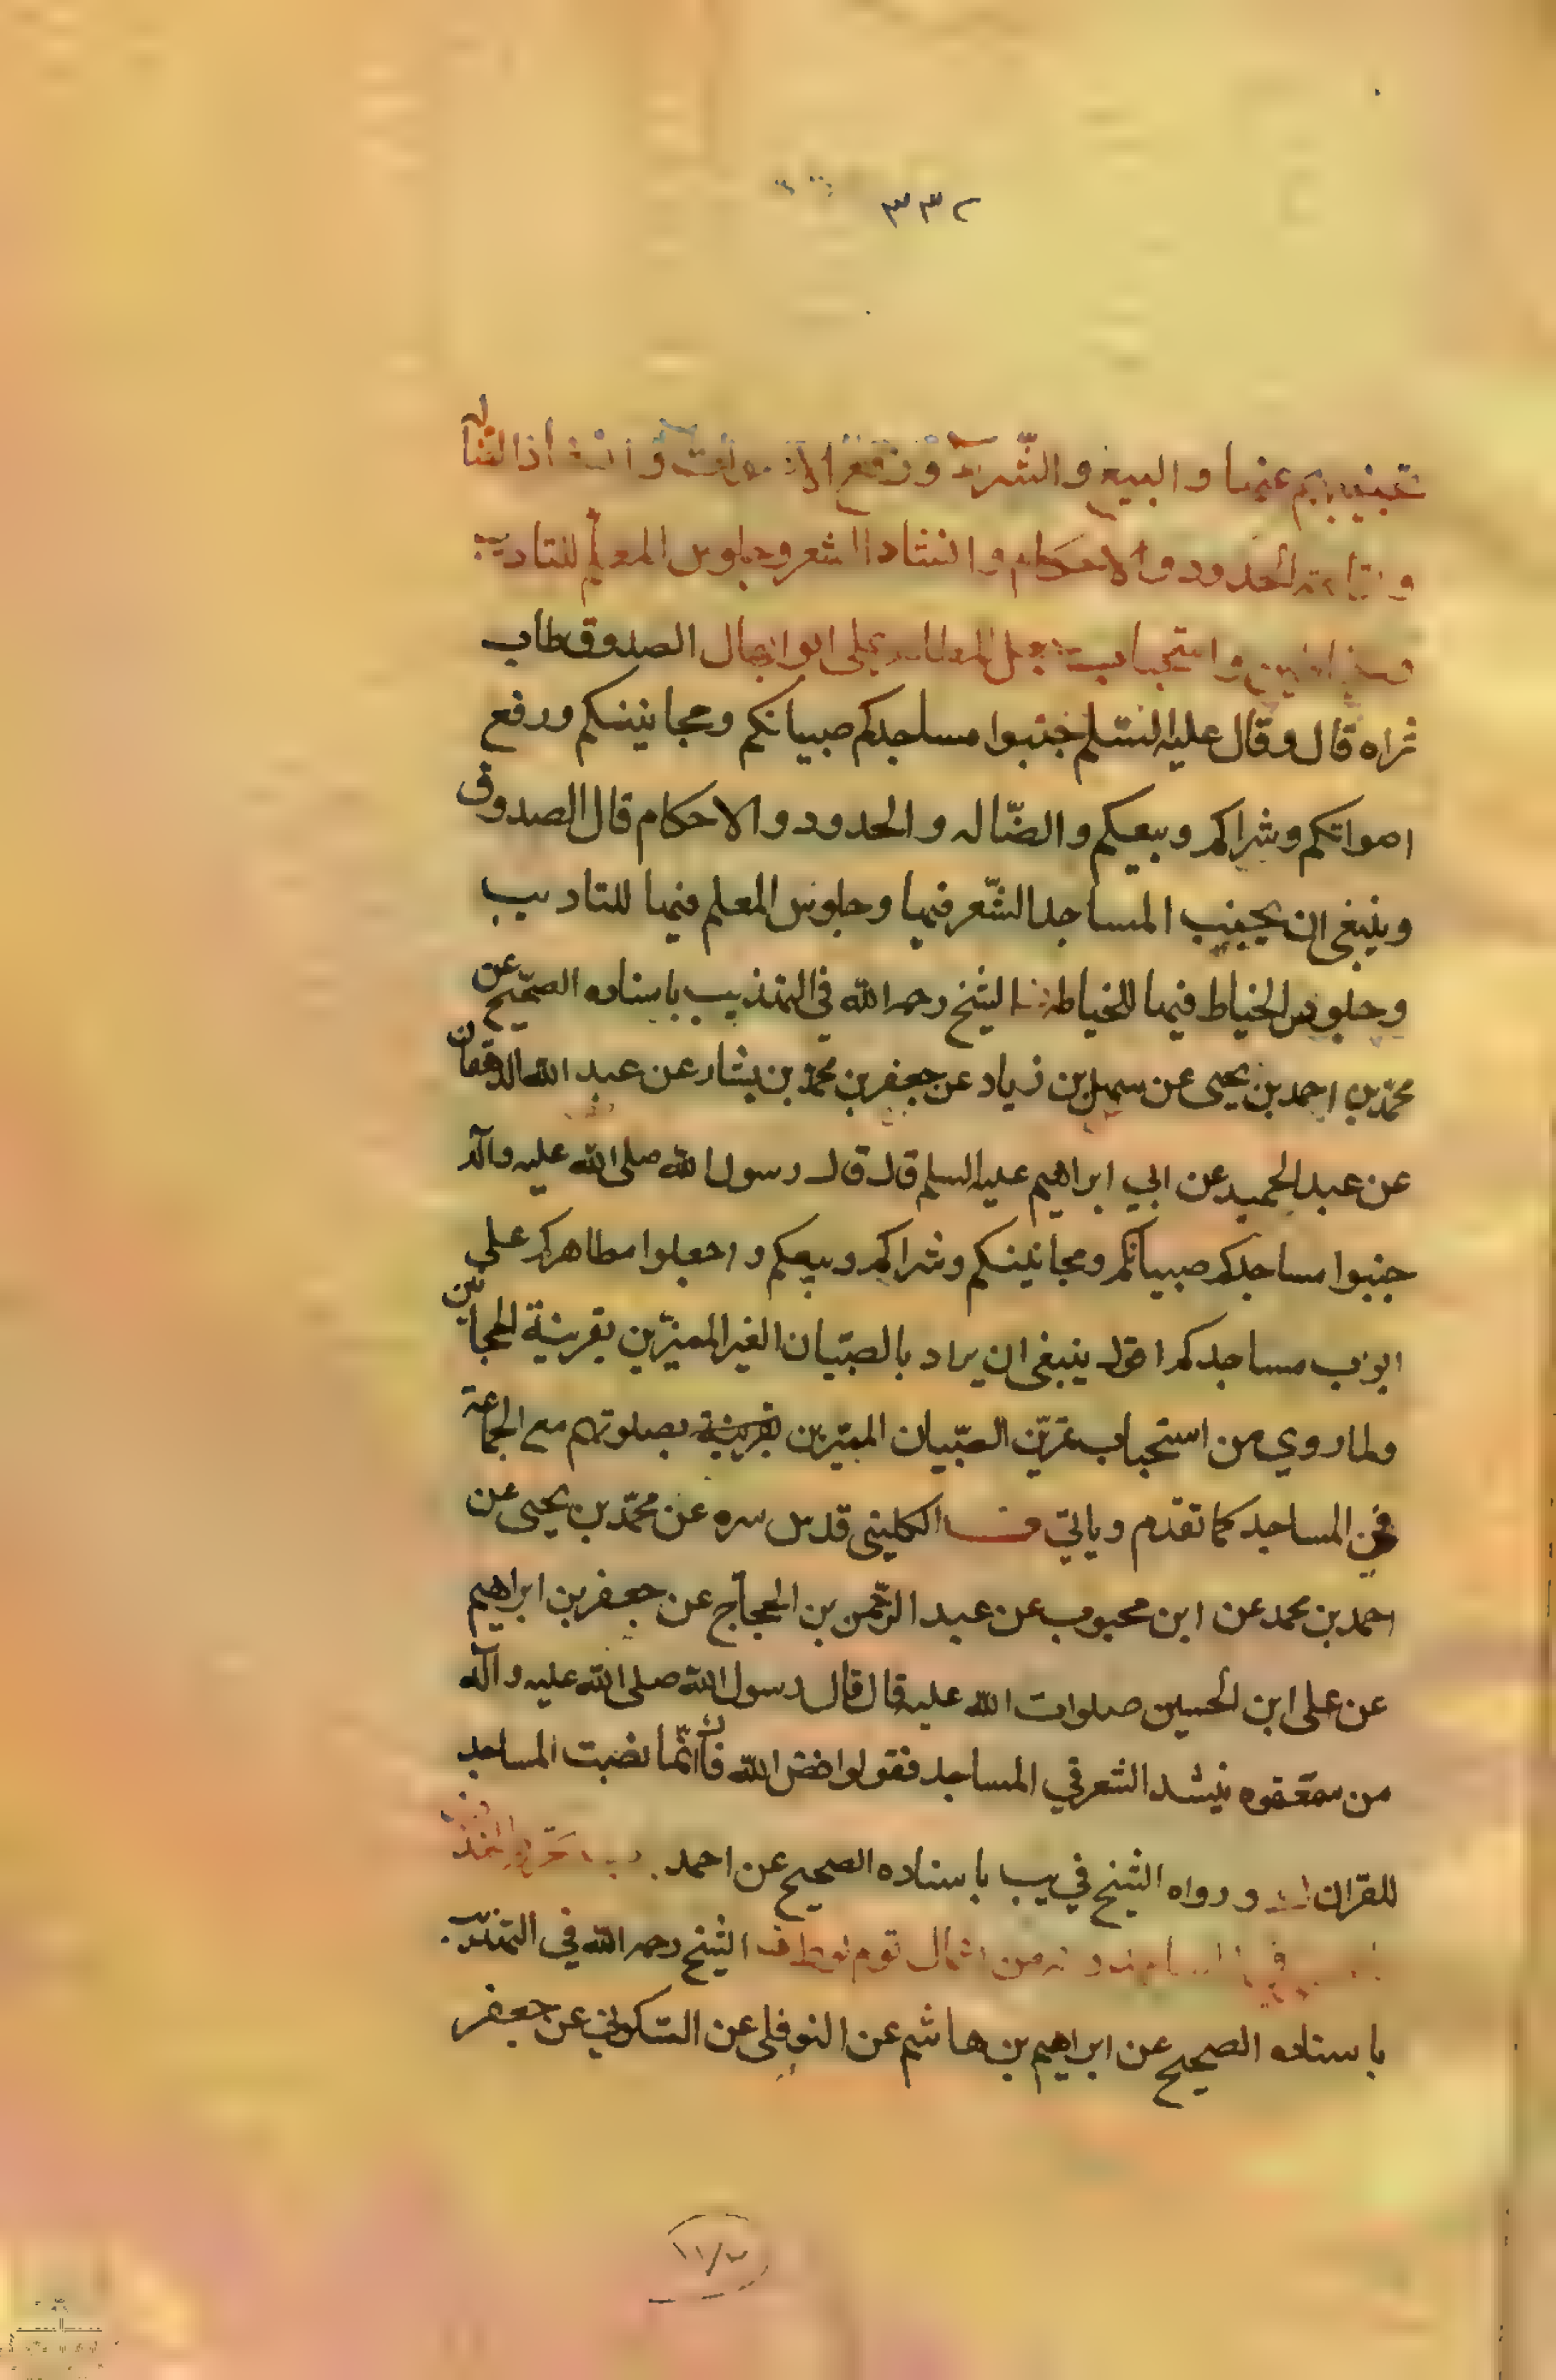 ٣٣٢
تجنيبهم عنها والبيع والشراء ورفع الاصوات وانشاد الضالة
والحدود والاحكام وانشاد الشعر وجلوس المعلم للتاديب
واستحباب جعل المطاهر على ابوابها ل الصدوق طاب
ثراه قال وقال عليه السلم جنبوا مساجدكم صبيانكم ومجانينكم ورفع
اصواتكم وشراكم وبيعكم والضّاله والحدود والاحكام قال الصدوق
وينبغي ان يجنب المساجد الشّعر فيها وجلوس المعلم فيها للتاديب
وجلوس الخياط فيها للخياطه الشيخ رحمه الله في التهذيب باسناده الصحيح عن
محمّد بن احمد بن يحيى عن سهل بن زياد عن جعفر بن محمّد بن بشار عن عبد الله الدهقان
عن عبد الحميد عن ابي ابراهيم عليه السلم قال قال رسول الله صلى الله عليه وآله
جنبوا مساجدكم صبيانكم ومجانينكم وشراكم وبيعكم واجعلوا مطاهركم على
ابوب مساجدكم اقول ينبغي ان يراد بالصبّيان الغير المميّزين بقرينة المجانين
ولما روي من استحباب تمرّين الصّبيان المميّزين بقرينة بصلوتهم مع الجماعة
في المساجد كما تقدّم وياتي الكليني قدس سره عن محمّد بن يحيى عن
احمد بن محمد عن ابن محبوب عن عبد الرّحمن بن الحجاج عن جعفر بن ابراهيم
عن على ابن الحسين صلوات الله عليه قال قال رسول الله صلى الله عليه وآله
من سمعتموه ينشد الشعر في المساجد فقولوا فض الله فاك انّما نصبت المساجد
للقران ورواه الشيخ في يب باسناده الصحيح عن احمد
من اعمال قوم لوط الشيخ رحمه الله في التهذيب
باسناده الصحيح عن ابراهيم بن هاشم عن النوفلى عن السّكوني عن جعفر